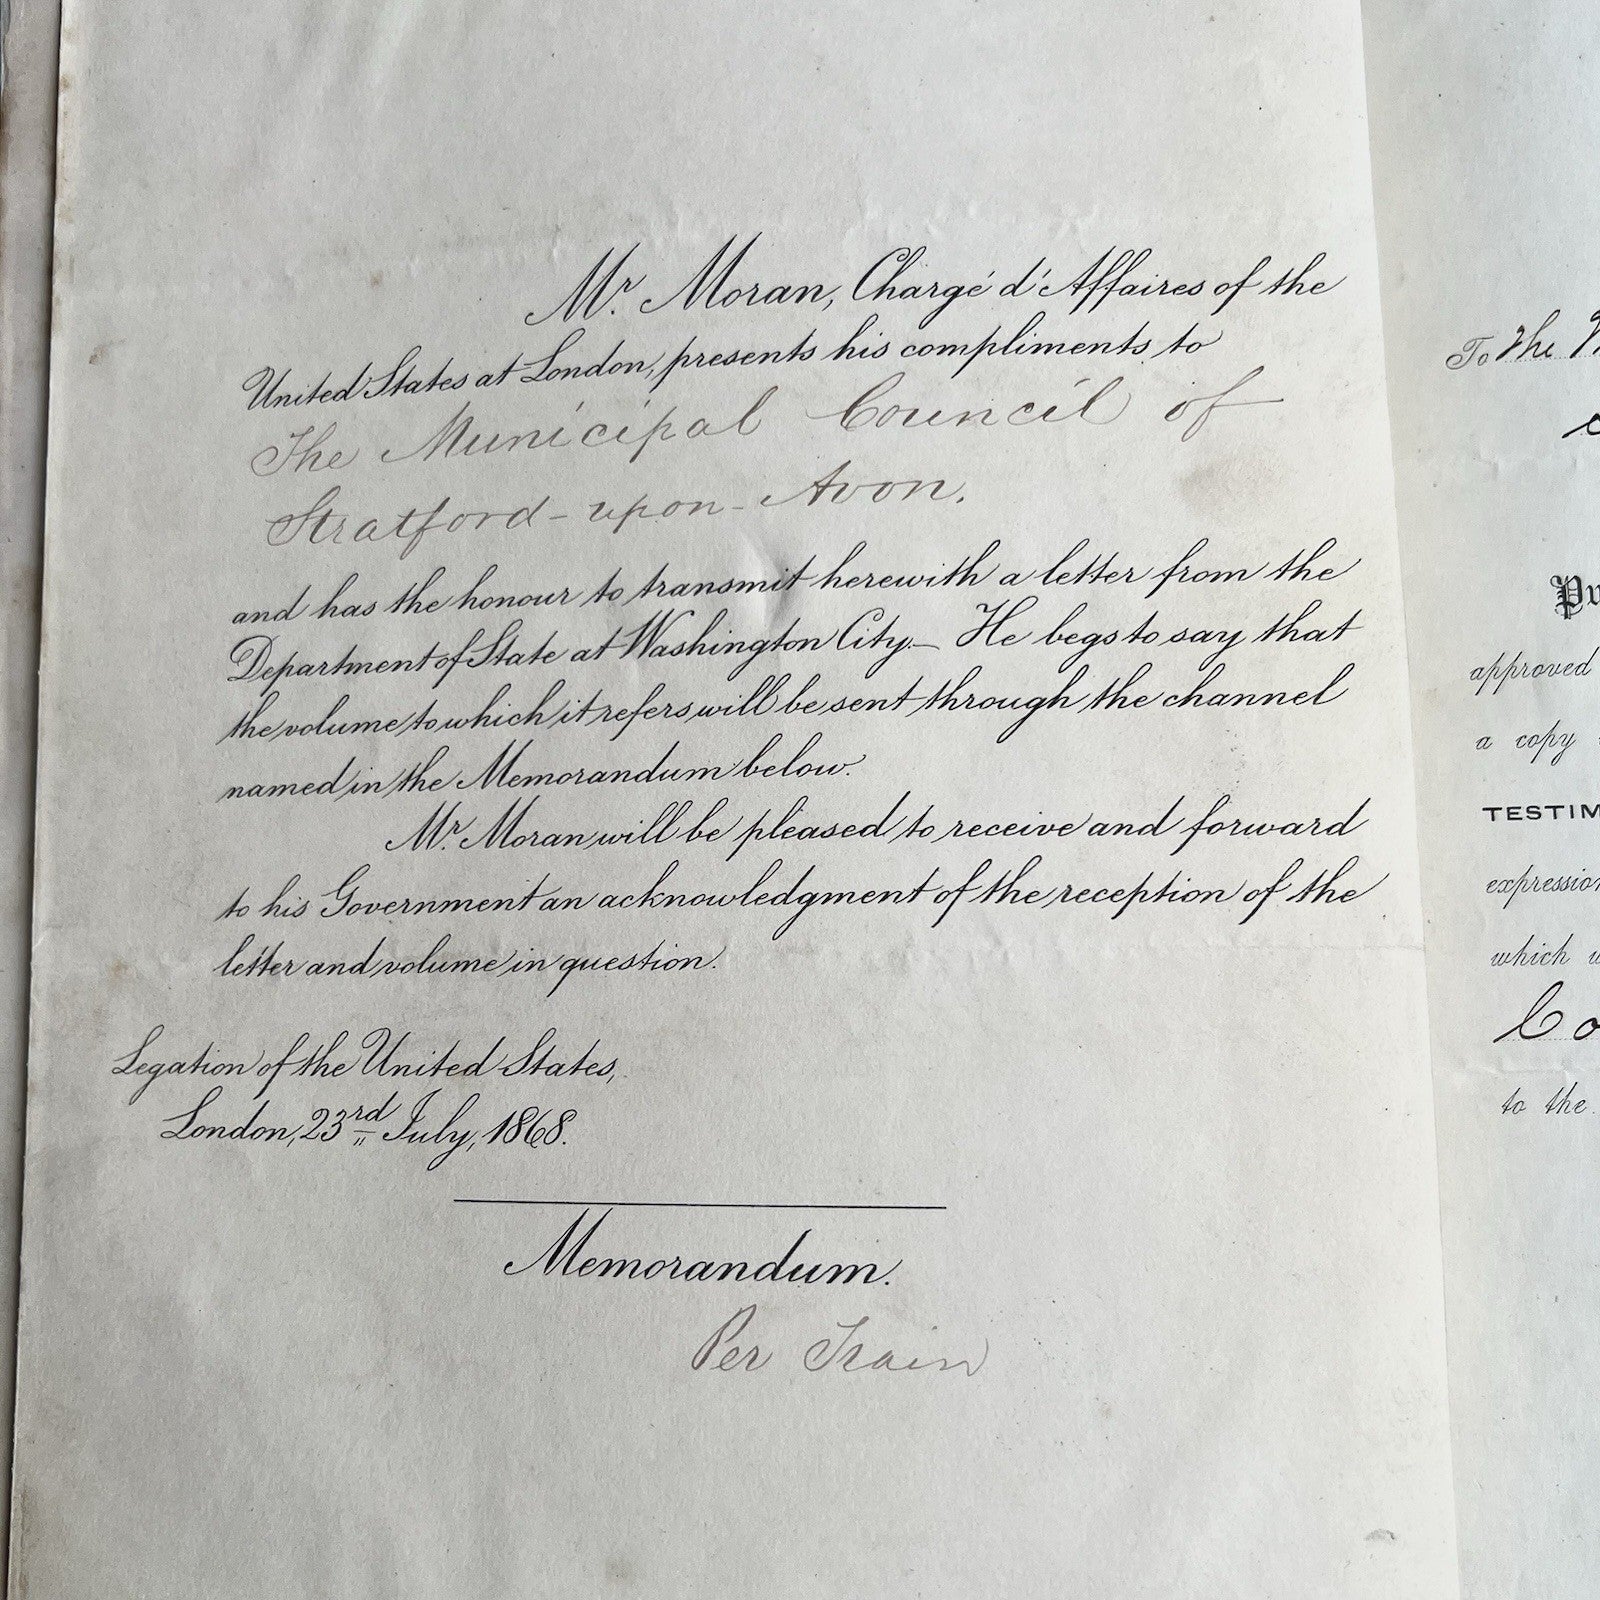 Mr. Moran, Chargé d'Affaires of the
United States at London, presents his compliments to
The Municipal Council of
Stratford-upon-Avon.
and has the honour to transmit herewith a letter from the
Department of State at Washington City.— He begs to say that
the volume to which it refers will be sent through the channel
named in the Memorandum below.
Mr. Moran will be pleased to receive and forward
to his Government an acknowledgment of the reception of the
letter and volume in question.
Legation of the United States,
London, 23rd July, 1868.
Memorandum.
Per Train
To The
approved
a copy
TESTIM
expression
which
Co
to the